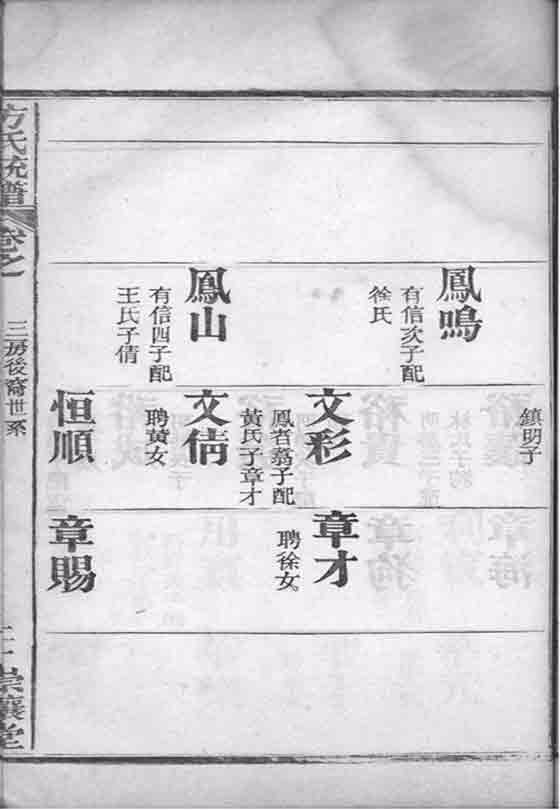 鎮明子
鳳鳴
有信次子配
徐氏
鳳山
有信四子配
王氏子倩
文彩
鳳岩翥子配
黃氏子章才
文倩
聘黃女
恒順
章才
聘徐女
章賜
方氏統譜
卷之
三房後裔世系
崇讓堂